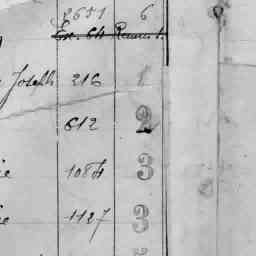 2651 6
Joseph 216 1
612 2
ie 1084 3
ie 1127 3